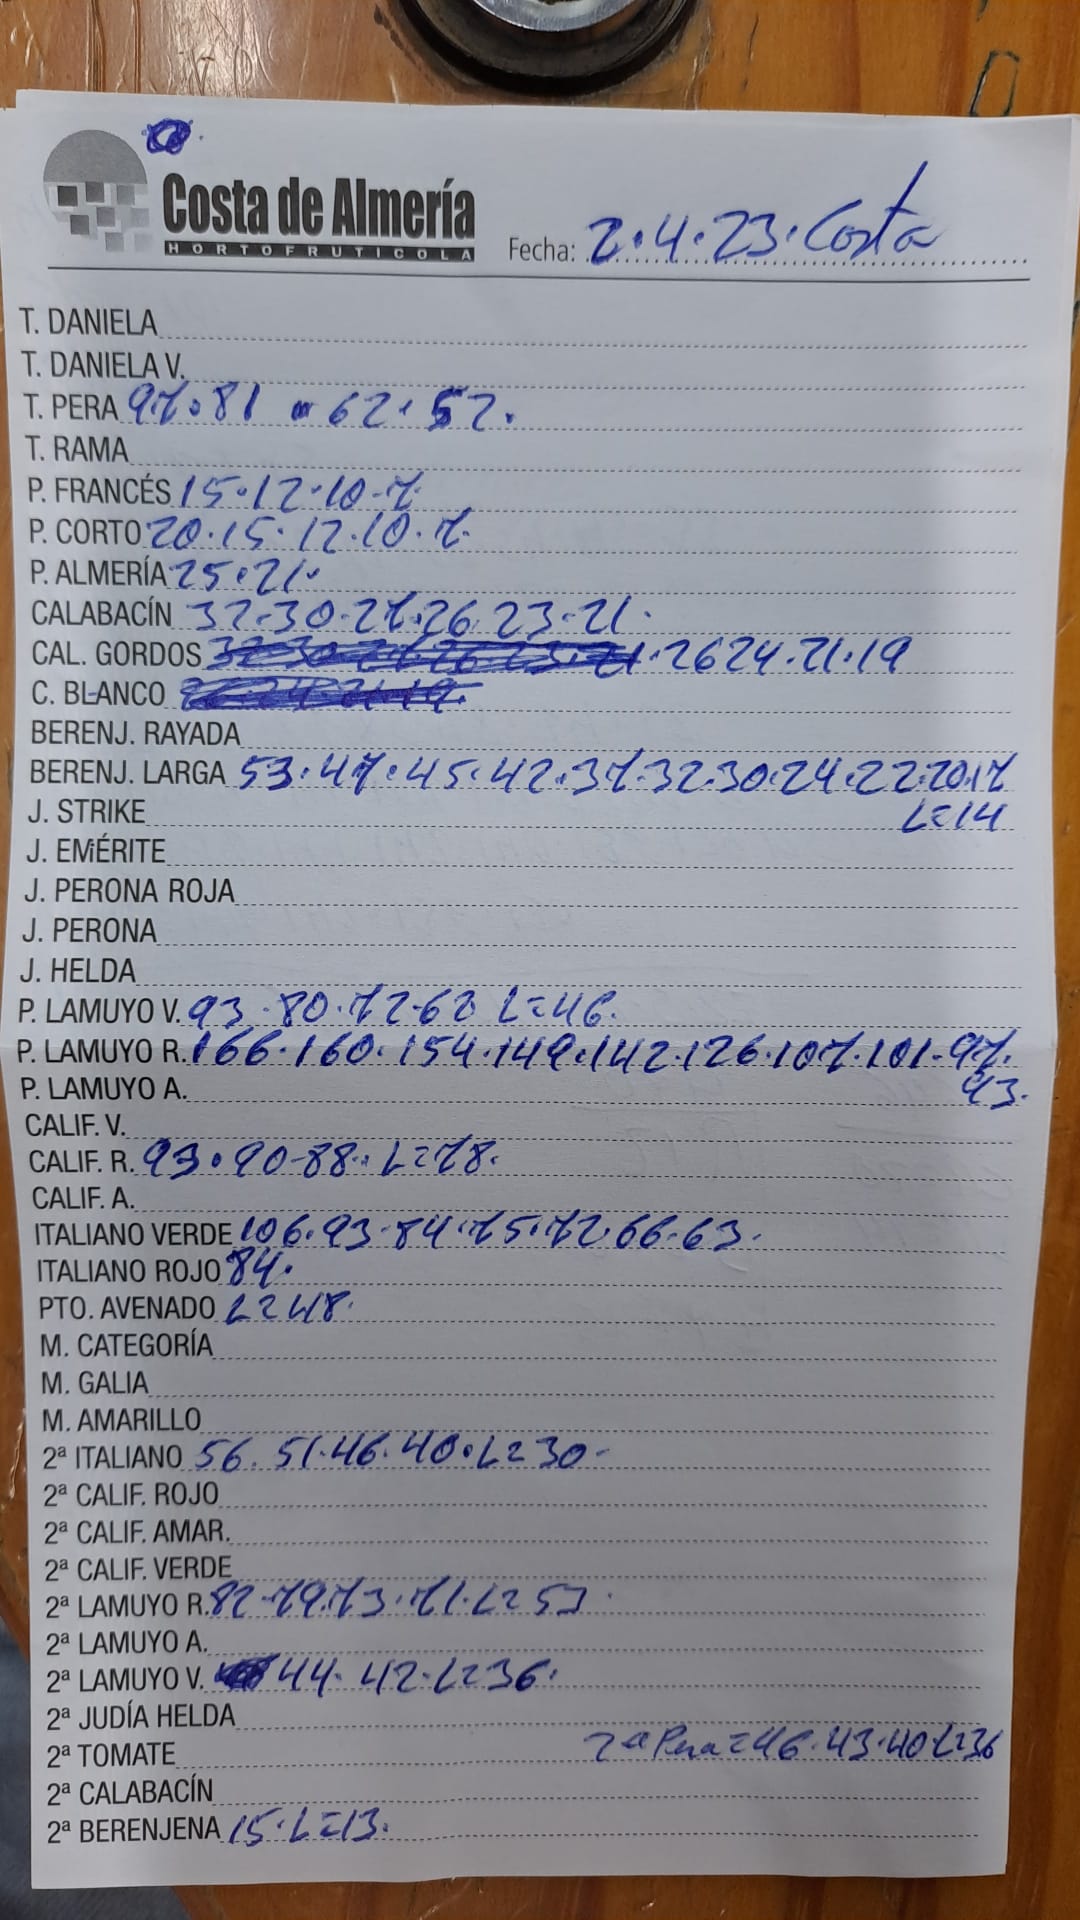 Costa de Almería
HORTOFRUTICOLA
Fecha: 2.4.23. Costa
T. DANIELA
T. DANIELA V.
T. PERA 97.81.62.52.
T. RAMA
P. FRANCÉS 15.12.10.7.
P. CORTO 20.15.12.10.7.
P. ALMERÍA 25.21.
CALABACÍN 32.30.27.26.23.21.
CAL. GORDOS 26 24.21.19
C. BLANCO
BERENJ. RAYADA
BERENJ. LARGA 53.47.45.42.37.32.30.24.22.20.17
J. STRIKE L=14
J. EMÉRITE
J. PERONA ROJA
J. PERONA
J. HELDA
P. LAMUYO V. 93.80.72.62 L=46.
P. LAMUYO R. 166.160.154.149.142.126.107.101.97.
P. LAMUYO A. 93.
CALIF. V.
CALIF. R. 93.90.88. L=78.
CALIF. A.
ITALIANO VERDE 106.93.84.75.72.66.63.
ITALIANO ROJO 84.
PTO. AVENADO L=48.
M. CATEGORÍA
M. GALIA
M. AMARILLO
2ª ITALIANO 56.51.46.40.L=30.
2ª CALIF. ROJO
2ª CALIF. AMAR.
2ª CALIF. VERDE
2ª LAMUYO R. 82.79.73.71.L=53.
2ª LAMUYO A.
2ª LAMUYO V. 44.42.L=36.
2ª JUDÍA HELDA
2ª TOMATE 2ª Pera=46.43.40.L=36
2ª CALABACÍN
2ª BERENJENA 15.L=13.